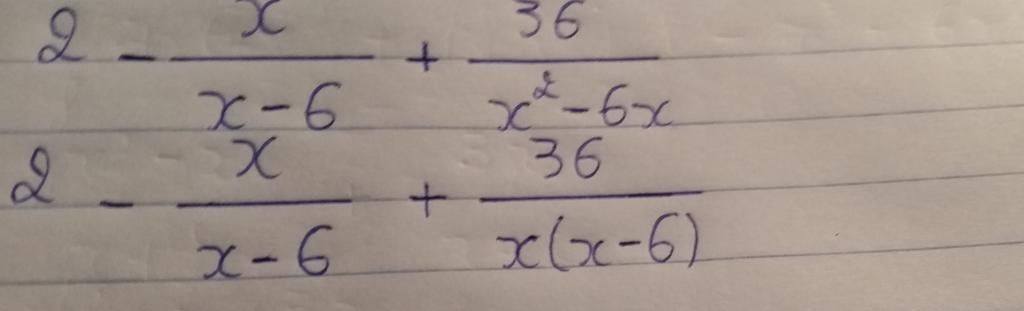 2 - x/(x-6) + 36/(x²-6x)
2 - x/(x-6) + 36/(x(x-6))